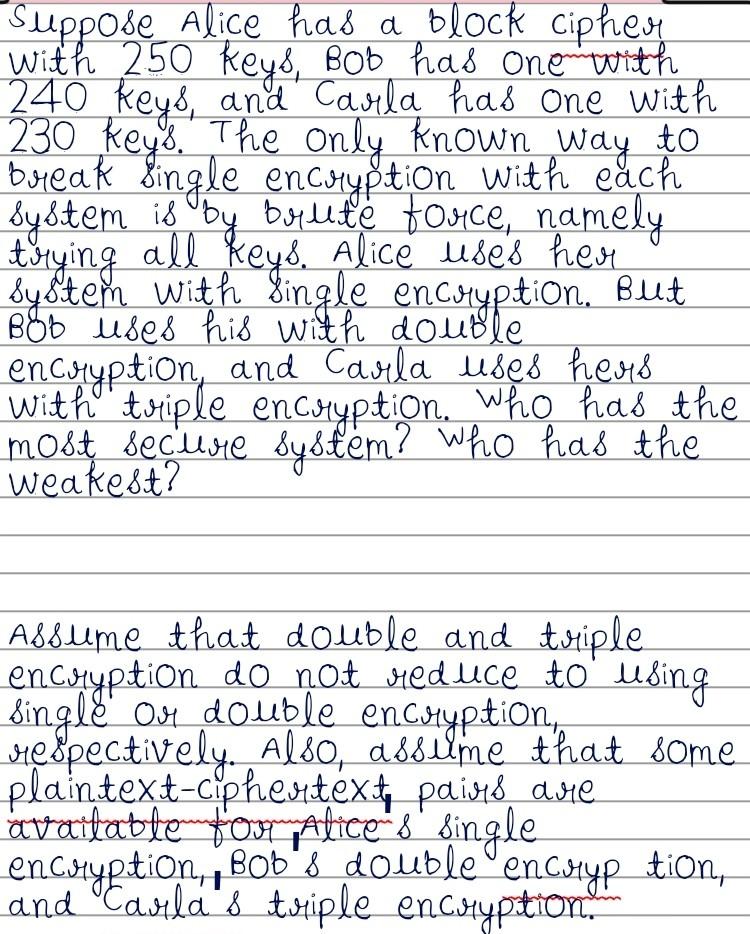 Suppose Alice has a block cipher
with 250 keys, Bob has one with
240 keys, and Carla has one with
230 keys. The only known way to
break single encryption with each
system is by brute force, namely
trying all keys. Alice uses her
system with single encryption. But
Bob uses his with double
encryption, and Carla uses hers
with triple encryption. Who has the
most secure system? Who has the
weakest?
Assume that double and triple
encryption do not reduce to using
single or double encryption,
respectively. Also, assume that some
plaintext-ciphertext pairs are
available for Alice s single
encryption, Bob s double encryp tion,
and Carla s triple encryption.